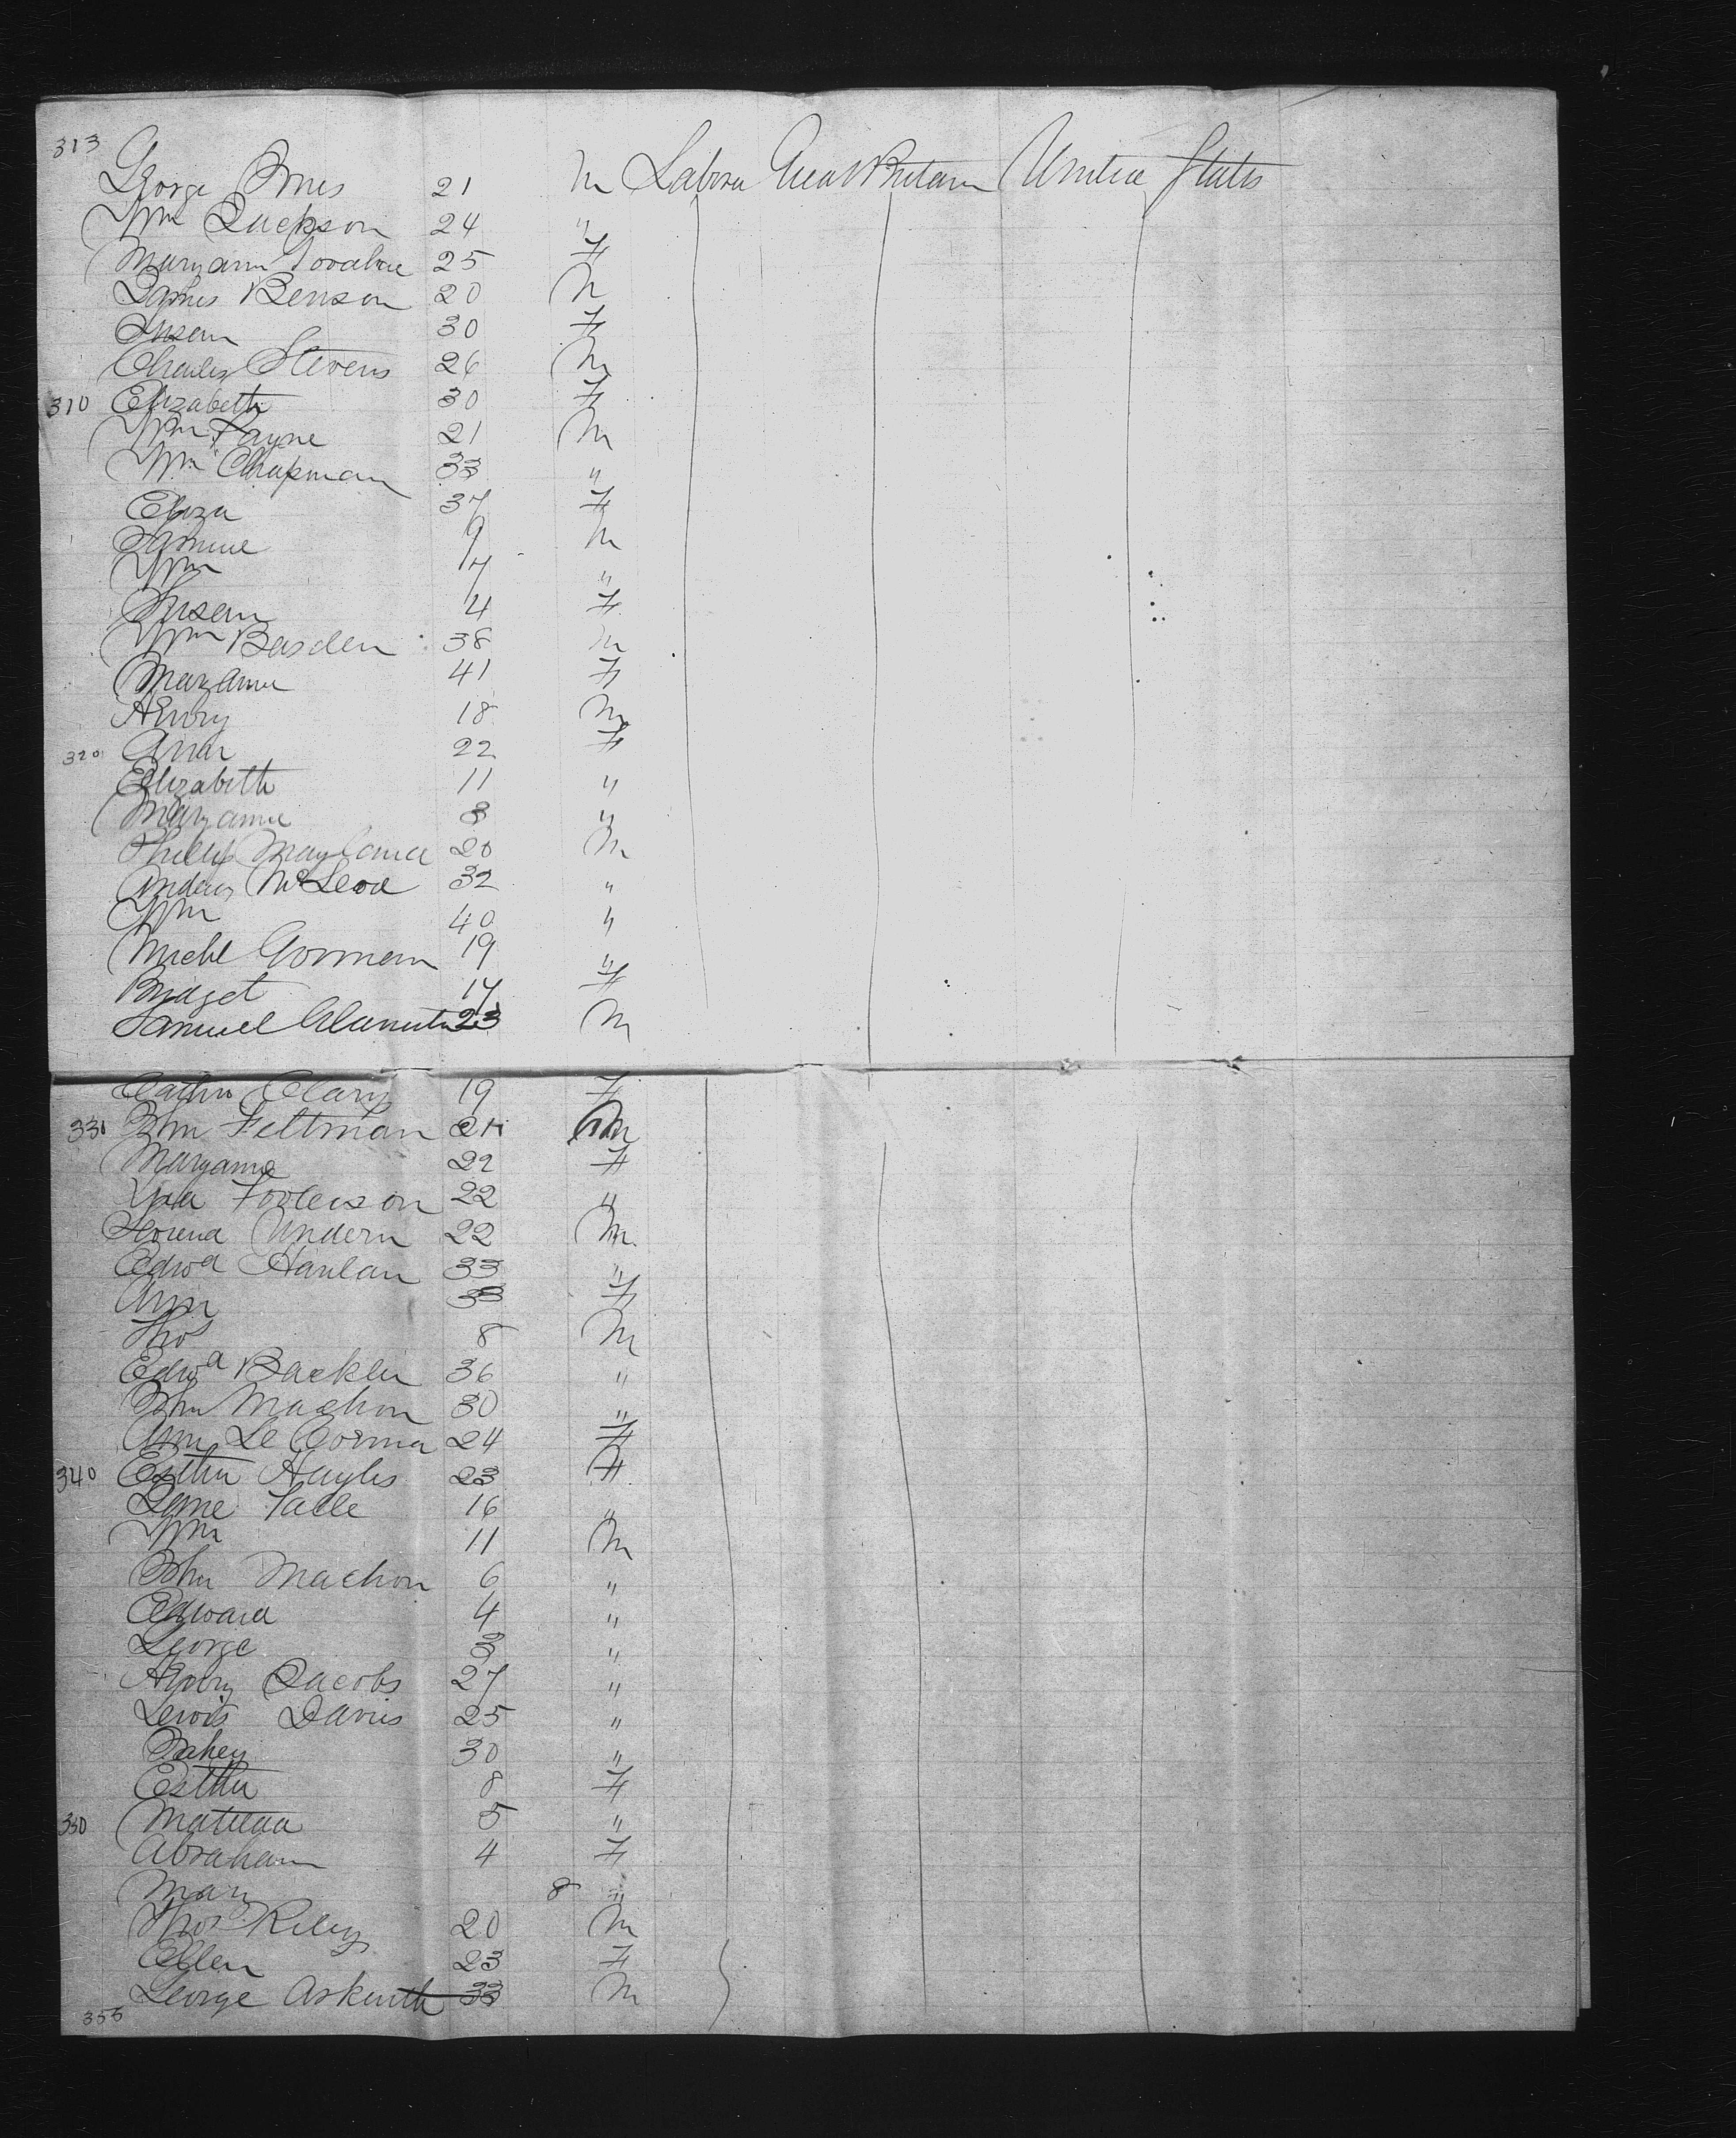 313
George Innes 21 M Labora Great Britain United States
Wm Jackson 24 "
Maryann 25 F
James Benson 20 M
Susan 30 F
Charles Stevens 26 M
310 Elizabeth 30 F
Wm Payne 21 M
Wm Chapman 33 "
Eliza 37 F
Samuel 9 M
Wm 7 "
Susan 4 F
Wm Basden 38 M
Maryann 41 F
Henry 18 M
320 Ann 22 F
Elizabeth 11 "
Maryann 8 "
Phillip Mayland 20 M
Andrew McLeod 32 "
Wm 40 "
Michl Gorman 19 "
Bridget 17 F
Samuel 23 M
Cathn Clary 19 F
330 John Feltman 21 M
Maryann 22 F
22 "
Undern 22 M
Edwd Hanlan 33 "
Ann 33 F
Thos 8 M
Edwd Backlin 36 "
John Machon 30 "
Ann Le Corma 24 F
340 Esther Hayles 23 F
Jane 16 "
Wm 11 M
John Machon 6 "
Edward 4 "
George 3 "
Henry Jacobs 27 "
Lewis Davis 25 "
30 "
Esther 8 F
350 Matilda 5 "
Abraham 4 F
Mary 8 "
Thos Riley 20 M
Ellen 23 F
George Askwith 33 M
355